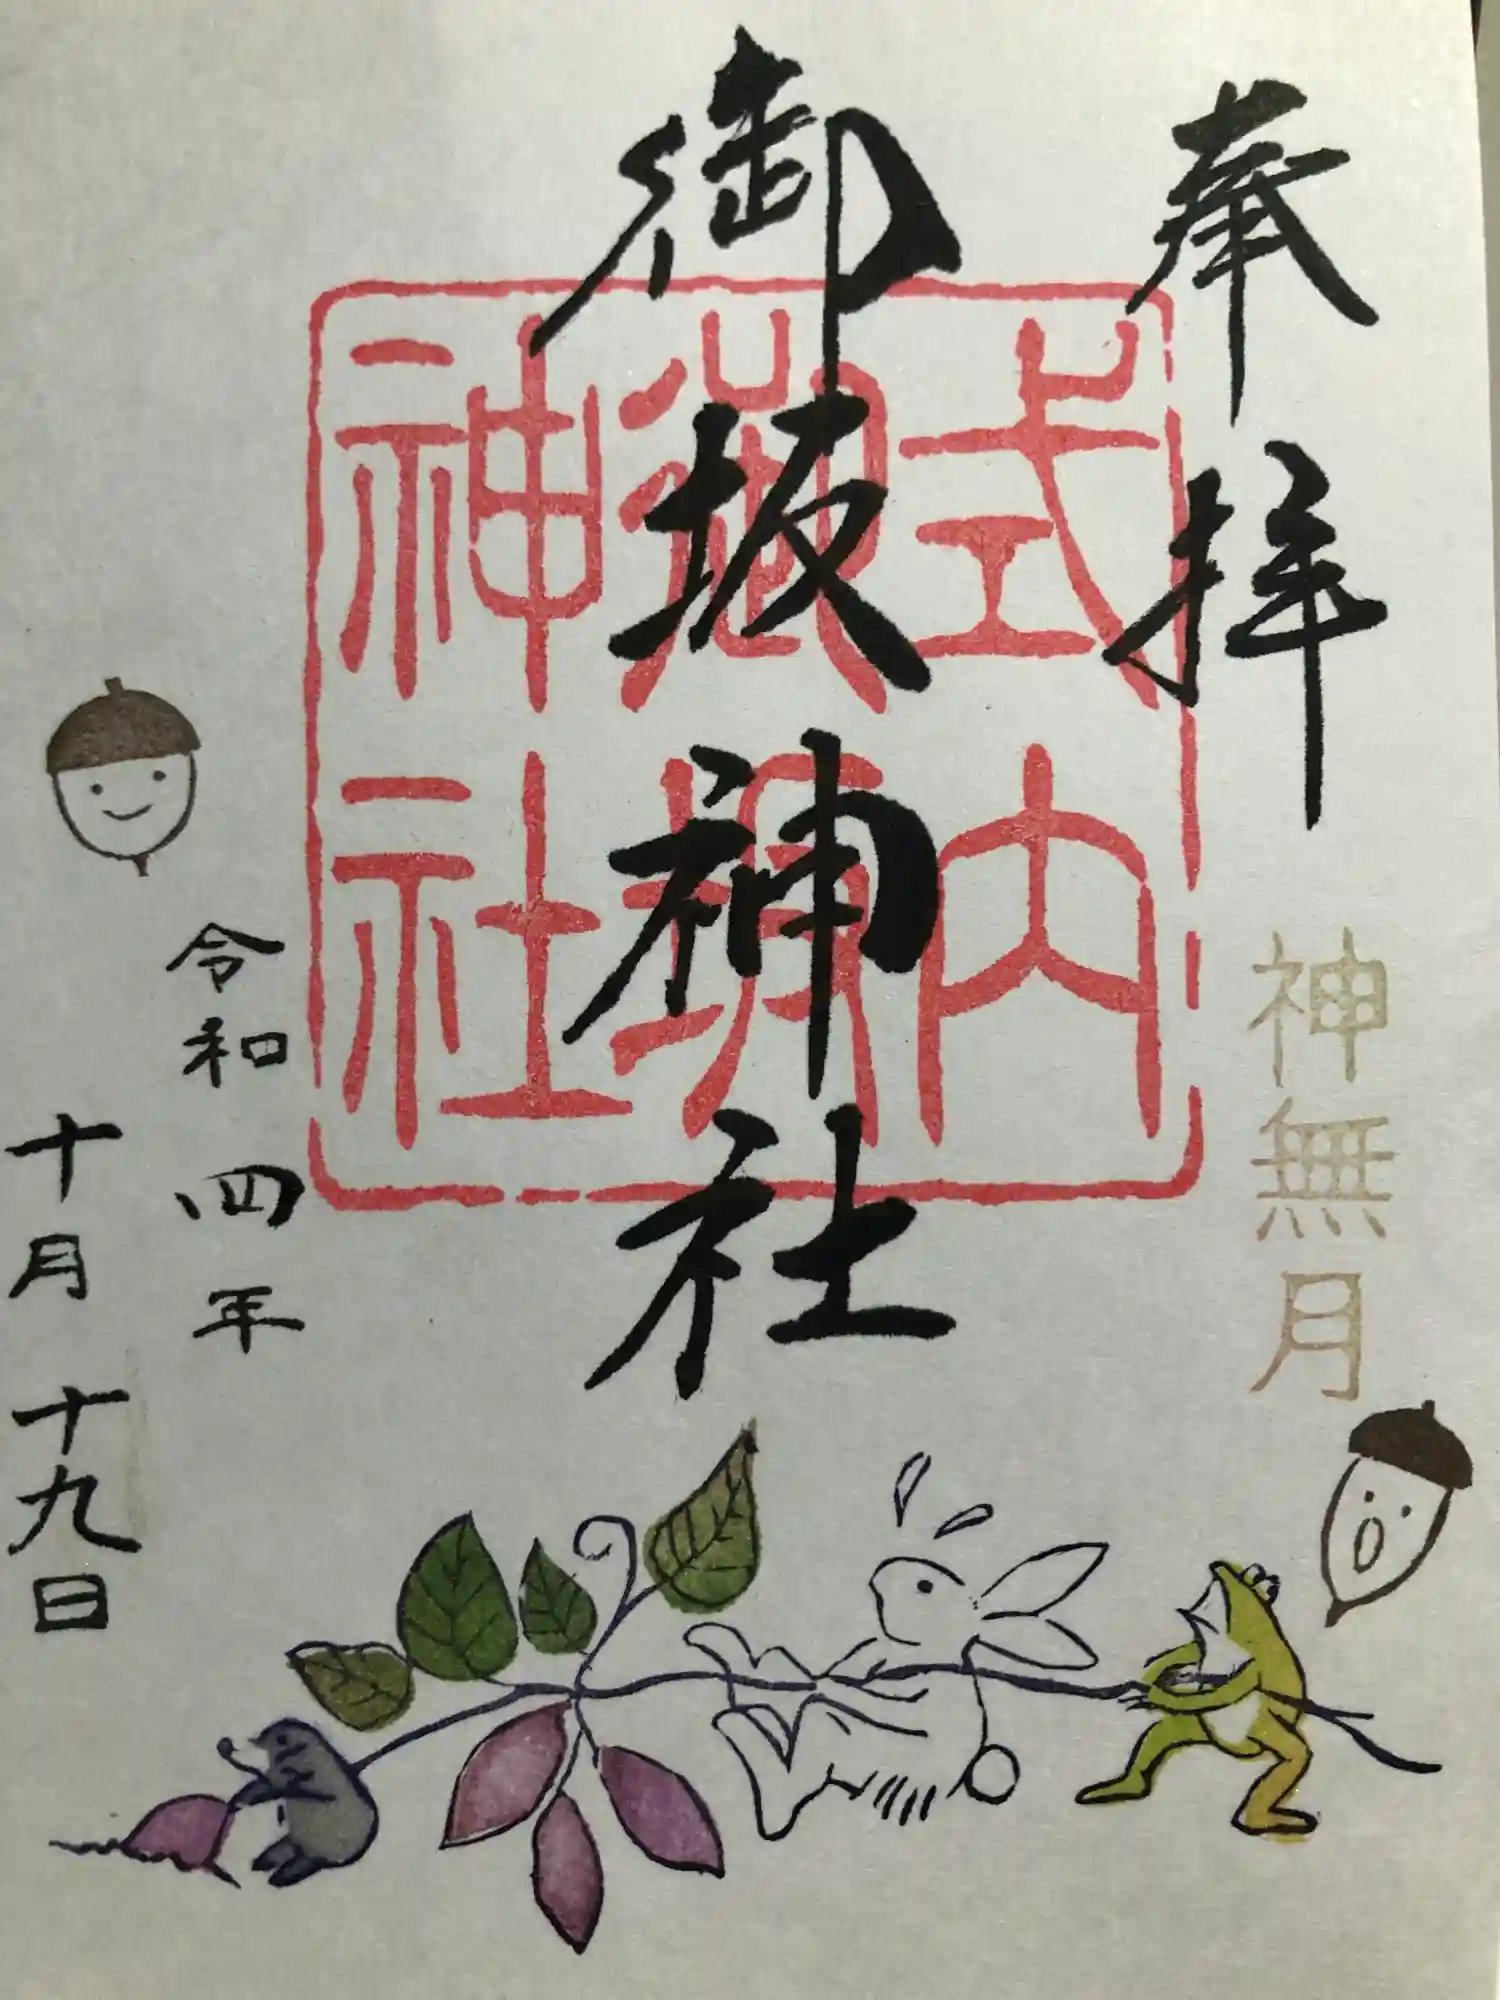 奉拝
式内
御坂
神社
御坂神社
神無月
令和四年
十月十九日